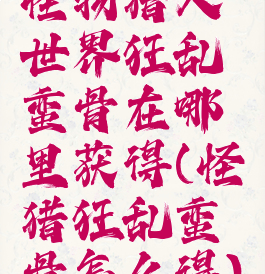 怪物猎人
世界狂乱
蛮骨在哪
里获得(怪
猎狂乱蛮
骨怎么得)